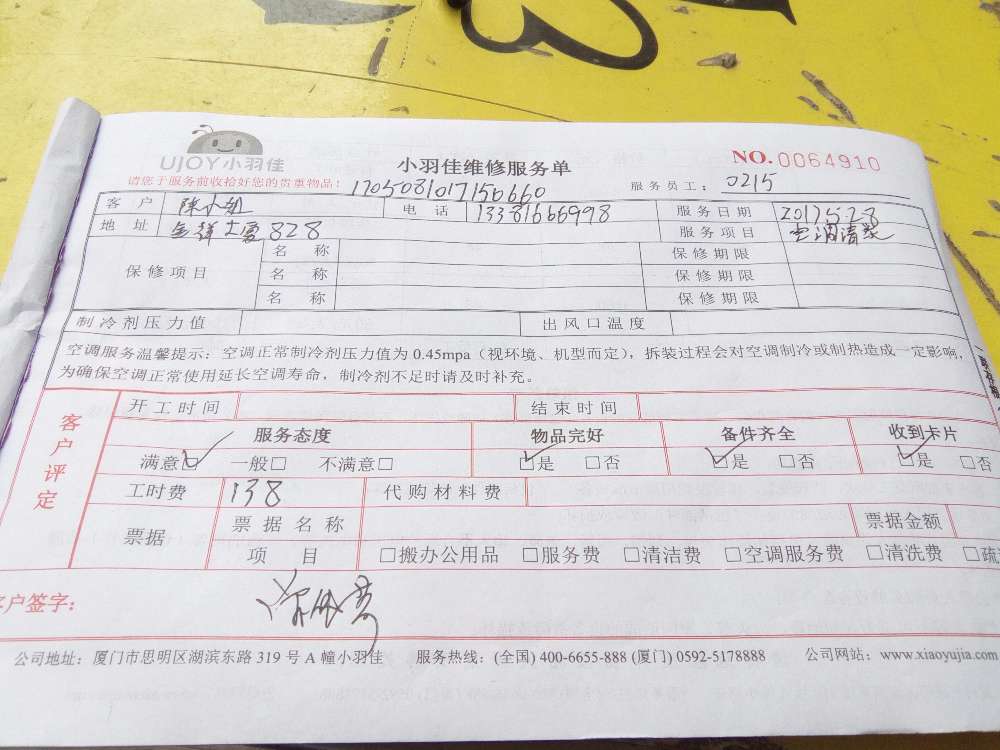 UJOY小羽佳
小羽佳维修服务单
NO.0064910
请您于服务前收拾好您的贵重物品!
1705081017150660
服务员工: 0215
客户 陈小姐 电话 13381666998 服务日期 2017.5.28
地址 金祥大厦828 服务项目 空调清洗
保修项目 名称 保修期限
名称 保修期限
名称 保修期限
制冷剂压力值 出风口温度
空调服务温馨提示:空调正常制冷剂压力值为 0.45mpa(视环境、机型而定),拆装过程会对空调制冷或制热造成一定影响,
为确保空调正常使用延长空调寿命,制冷剂不足时请及时补充。
客户评定
开工时间 结束时间
服务态度 物品完好 备件齐全 收到卡片
满意☑ 一般□ 不满意□ ☑是 □否 ☑是 □否 ☑是 □否
工时费 138 代购材料费
票据 票据名称 票据金额
项目 □搬办公用品 □服务费 □清洁费 □空调服务费 □清洗费 □疏
客户签字:
公司地址:厦门市思明区湖滨东路 319 号 A 幢小羽佳 服务热线:(全国) 400-6655-888 (厦门) 0592-5178888 公司网站:www.xiaoyujia.com